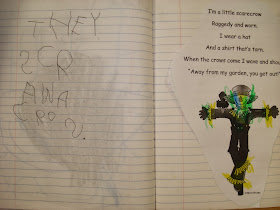 THEY
SCR
AWA
CRO
I'm a little scarecrow
Raggedy and worn.
I wear a hat
And a shirt that's torn.
When the crows come I wave and shout
"Away from my garden, you get out!"